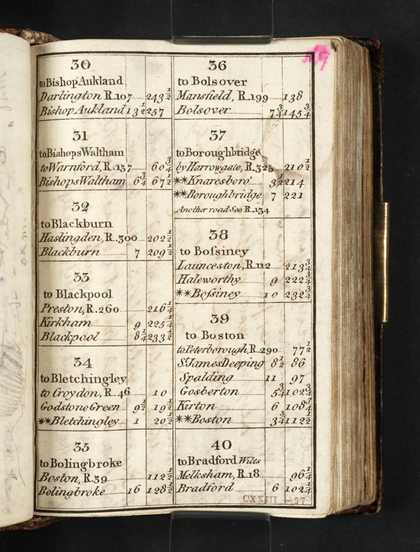 30
to Bishop Aukland
Darlington, R.107 243½
Bishop Aukland 13½ 257
31
to Bishops Waltham
to Warnford, R.137 60¾
Bishops Waltham 6¾ 67½
32
to Blackburn
Haslingden, R.300 202½
Blackburn 7 209½
33
to Blackpool
Preston, R.260 216¼
Kirkham 9 225¼
Blackpool 8¼ 233½
34
to Bletchingley
to Croydon, R.46 10
Godstone Green 9½ 19½
**Bletchingley 1 20½
35
to Bolingbroke
Boston, R.39 112½
Bolingbroke 16 128½
36
to Bolsover
Mansfield, R.199 138
Bolsover 7¾ 145¾
37
to Boroughbridge
by Harrowgate, R.325 210½
**Knaresboro' 3½ 214
**Boroughbridge 7 221
Another road See R.134
38
to Boſsiney
Launceston, R.112 213¾
Haleworthy 9 222¾
**Boſsiney 10 232¾
39
to Boston
to Peterborough, R.290 77½
St. James Deeping 8½ 86
Spalding 11 97
Gosberton 5¾ 102¾
Kirton 6 108¼
**Boston 3¾ 112½
40
to Bradford Wilts
Melksham, R.18 96¼
Bradford 6 102¼